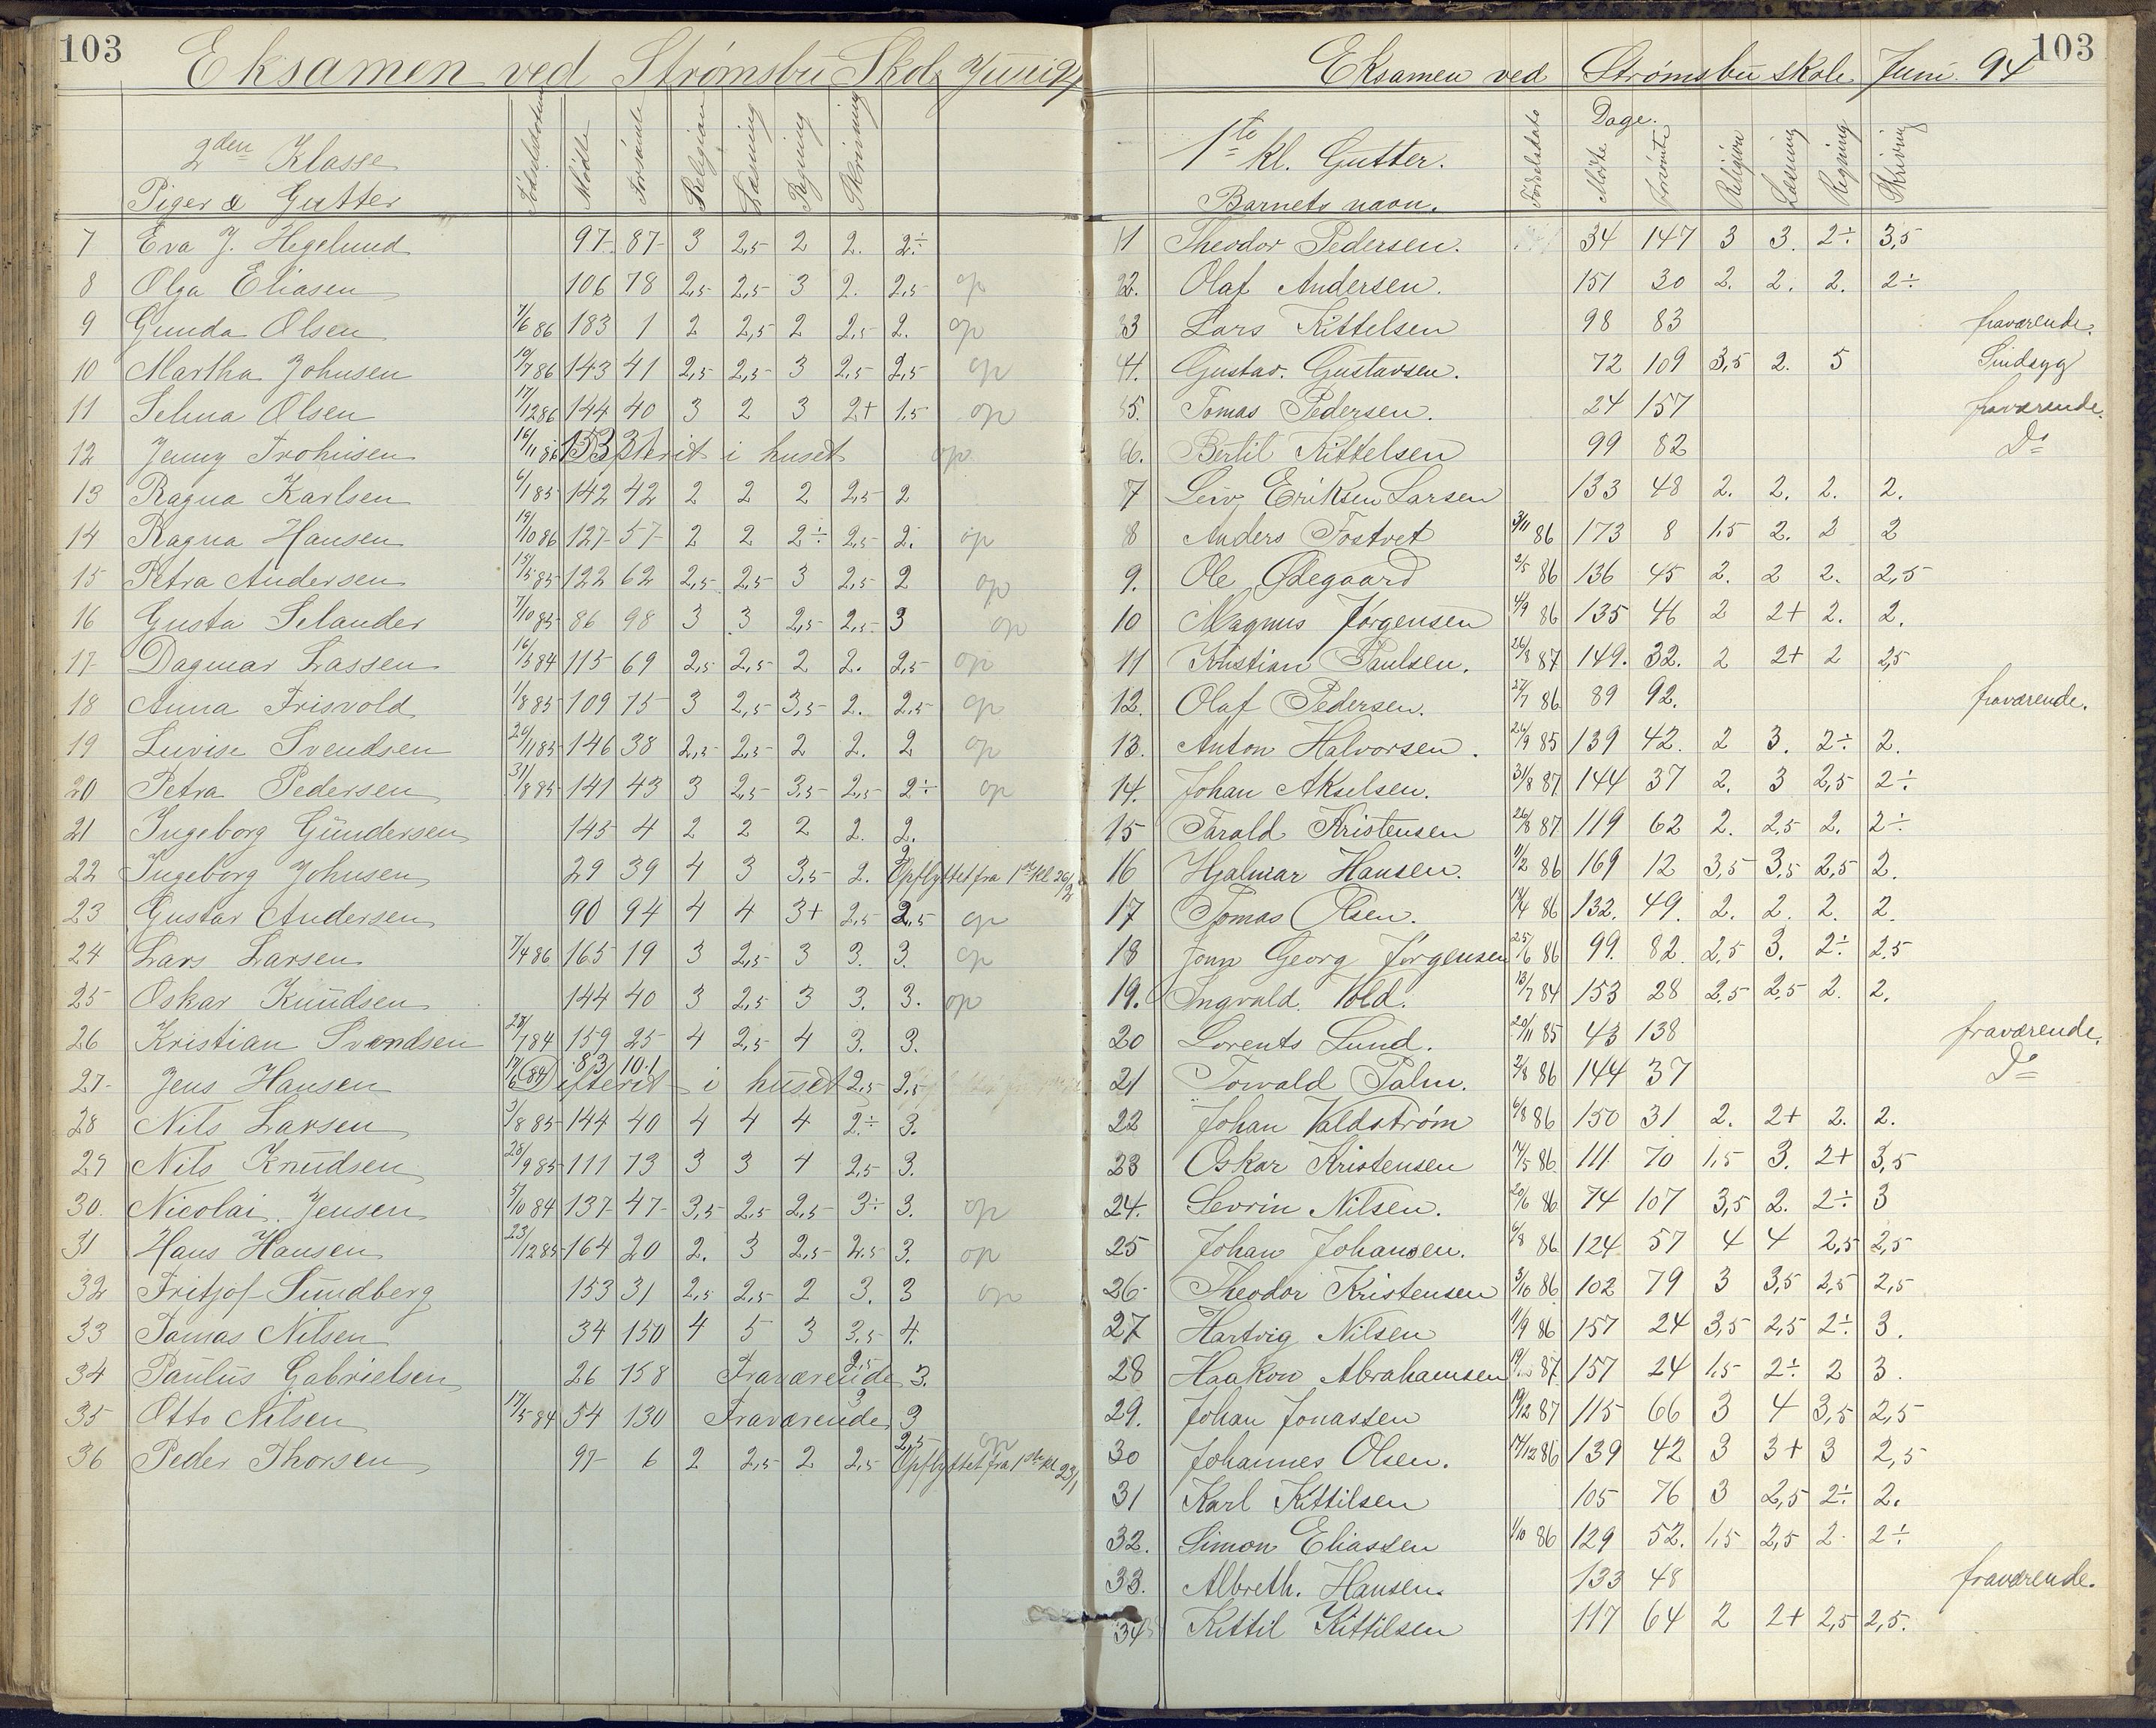 103
Eksamen ved Strømsbu Skole Juni 94
2den Klasse
Piger & Gutter
Fødselsdatum Mødte Forsømte Religion Læsning Regning Skrivning
7 Eva J. Hegelund 97 87 3 2,5 2 2. 2÷
8 Olga Eliasen 106 78 2,5 2,5 3 2. 2,5 op
9 Gunda Olsen 7/6 86 183 1 2 2,5 2 2,5 2. op
10 Martha Johnsen 19/7 86 143 41 2,5 2,5 3 2,5 2,5 op
11 Selma Olsen 17/12 86 144 40 3 2 3 2+ 1.5 op
12 Jenny Trohnsen 16/11 86 153 31 i huset op
13 Ragna Karlsen 6/1 85 142 42 2 2 2 2,5 2
14 Ragna Hansen 19/10 86 127 57 2 2 2÷ 2,5 2. op
15 Petra Andersen 15/5 85 122 62 2,5 2,5 3 2,5 2 op
16 Gusta Selander 7/10 85 86 98 3 3 2,5 2,5 3 op
17 Dagmar Lassen 16/5 84 115 69 2,5 2,5 2 2. 2,5 op
18 Anna Frisvold 1/8 85 109 75 3 2,5 3,5 2. 2,5 op
19 Luvise Svendsen 29/11 85 146 38 2,5 2,5 2 2. 2 op
20 Petra Pedersen 31/8 85 141 43 3 2,5 3,5 2,5 2÷ op
21 Ingeborg Gundersen 145 4 2 2 2 2. 2.
22 Ingeborg Johnsen 29 39 4 3 3,5 2. 2 Opflyttet fra 1ste kl 26/2
23 Gustav Andersen 90 94 4 4 3+ 2,5 2,5 op
24 Lars Larsen 7/4 86 165 19 3 2,5 3 3. 3. op
25 Oskar Knudsen 144 40 3 2,5 3 3. 3. op
26 Kristian Svendsen 28/7 84 159 25 4 2,5 4 3. 3.
27 Jens Hansen 17/6 84 83 101 difterit i huset 2,5 2,5
28 Nils Larsen 3/8 85 144 40 4 4 4 2÷ 3.
29 Nils Knudsen 28/9 85 111 73 3 3 4 2,5 3.
30. Nicolai Jensen 5/10 84 137 47 3,5 2,5 2,5 3÷ 3. op
31 Hans Hansen 23/12 85 164 20 2. 3 2,5 2.5 3. op
32 Fritjof Sundberg 153 31 2,5 2,5 2 3. 3 op
33 Tomas Nilsen 34 150 4 5 3 3,5 4.
34 Paulus Gabrielsen 26 158 Fraværende 2,5 3.
35 Otto Nilsen 17/5 84 54 130 Fraværende 3 3
36 Peder Thorsen 97 6 2 2,5 2 2,5 2,5 op Opflyttet fra 1ste kl 23/1
103
Eksamen ved Strømsbu skole Juni 94
1ste kl. Gutter.
Barnets navn.
Dage.
Fødselsdato Mødte Forsømte Religion Læsning Regning Skrivning
1 Theodor Pedersen. 34 147 3 3. 2÷ 3,5
2. Olaf Andersen. 151 30 2. 2. 2. 2÷
3 Lars Kittelsen 98 83 fraværende.
4. Gustav. Gustavsen. 72 109 3,5 2. 5 Sindsyg
5. Tomas Pedersen. 24 157 fraværende.
6. Bertil Kittelsen 99 82 Do
7 Leiv Eriksen Larsen 133 48 2. 2. 2. 2.
8 Anders Fostvet 3/11 86 173 8 1.5 2. 2 2
9. Ole Ødegaard 2/5 86 136 45 2. 2 2. 2,5
10 Magnus Jørgensen 4/9 86 135 46 2 2+ 2. 2.
11 Kristian Paulsen. 26/8 87 149. 32. 2 2+ 2 2,5
12. Olaf Pedersen. 27/7 86 89 92. fraværende.
13. Anton Halvorsen. 26/9 85 139 42. 2 3. 2÷ 2.
14. Johan Akselsen. 31/8 87 144 37 2. 3 2,5 2÷
15 Tarald Kristensen 26/8 87 119 62 2. 2,5 2. 2÷
16 Hjalmar Hansen. 11/2 86 169 12 3,5 3,5 2,5 2.
17 Tomas Olsen. 14/4 86 132. 49. 2. 2. 2. 2.
18 Jonn Georg Jørgensen 25/6 86 99. 82. 2,5 3. 2÷ 2.5
19. Ingvald. Vold. 13/7 84 153 28 2,5 2,5 2. 2.
20 Lorents Lund. 20/11 85 43 138 fraværende.
21 Torvald Palm. 2/8 86 144 37 Do
22 Johan Valdstrøm 6/8 86 150 31 2. 2+ 2. 2.
23 Oskar Kristensen 14/5 86 111 70 1,5 3. 2+ 3,5
24. Sevrin Nilsen. 20/6 86 74 107 3,5 2. 2÷ 3
25 Johan Johansen. 6/8 86 124 57 4 4 2,5 2,5
26 Theodor Kristensen 3/10 86 102 79 3 3,5 2,5 2,5
27 Hartvig Nilsen 1/9 86 157 24 3,5 2,5 2÷ 3.
28 Haakon Abrahamsen 87 157 24 1.5 2÷ 2 3.
29. Johan Jonassen 19/12 87 115 66 3 4 3,5 2,5
30 Johannes Olsen. 14/12 86 139 42 3 3+ 3 2,5
31 Karl Kittilsen 105 76 3 2,5 2÷ 2.
32. Simon Eliassen 1/10 86 129 52. 1.5 2,5 2 2÷
33. Albreth. Hansen. 133 48 fraværende.
34 Kittil Kittilsen 117 64 2 2+ 2,5 2,5.